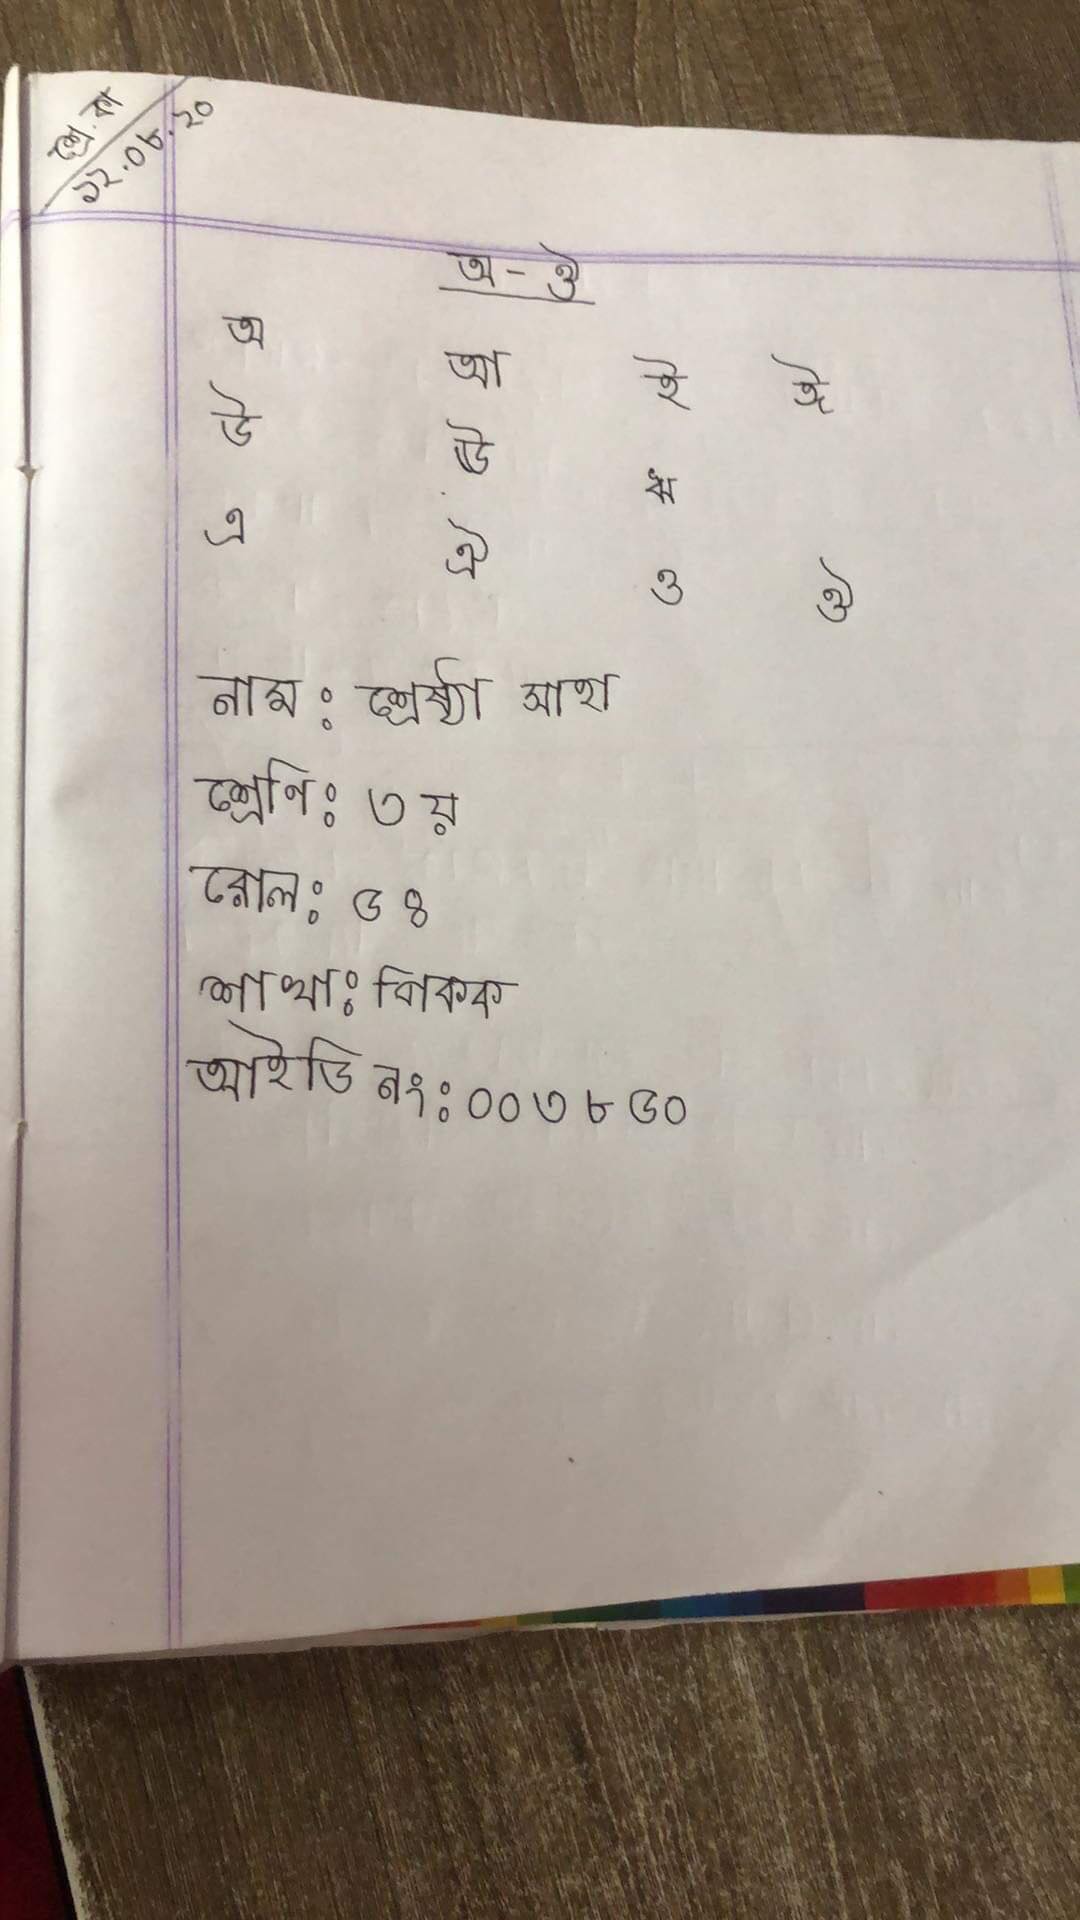 শ্রে.কা
১২.০৮.২০
অ - ঔ
অ আ ই ঈ
উ ঊ ঋ
এ ঐ ও ঔ
নাম: শ্রেষ্ঠা সাহা
শ্রেণি: ৩য়
রোল: ৬৪
শাখা:
আইডি নং: ০০৩৮৬০